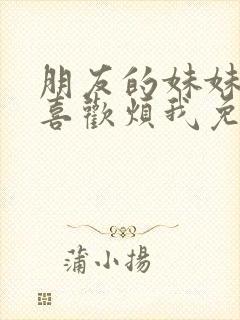 朋友的妹妹
喜歡煩我免
蒲小揚